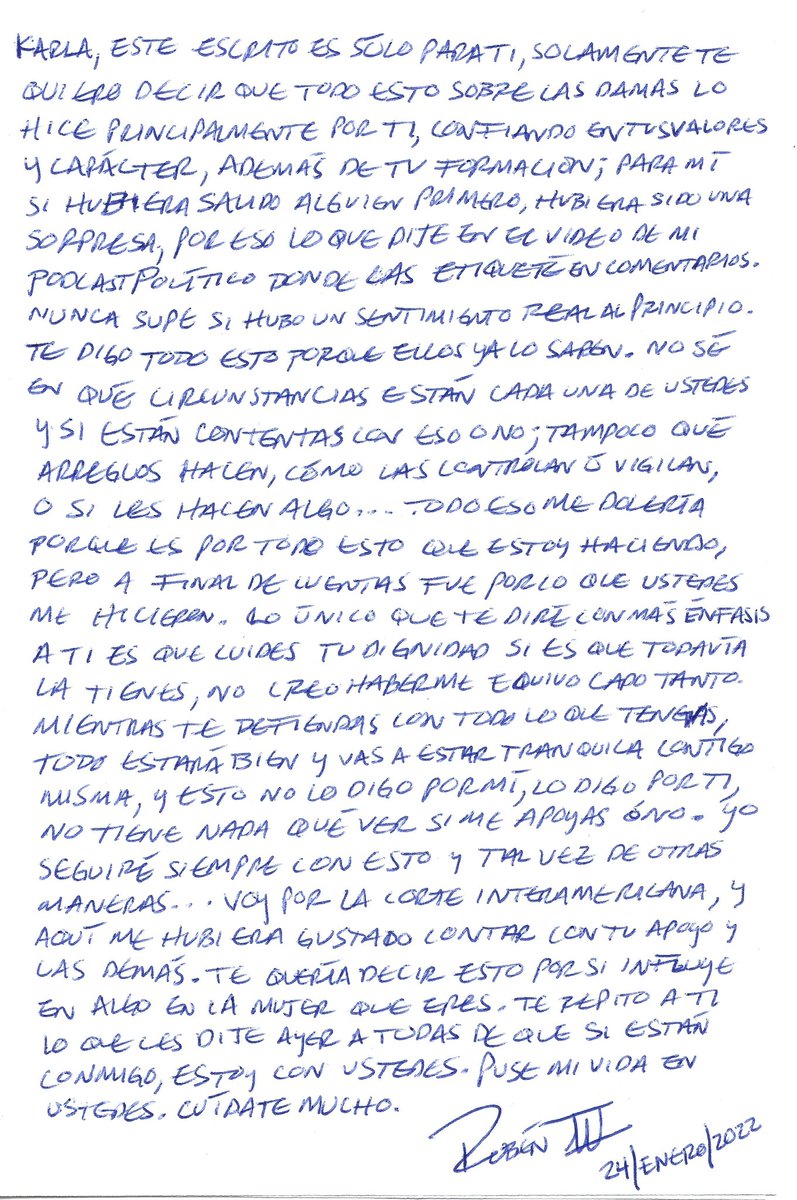 KARLA, ESTE ESCRITO ES SÓLO PARA TI, SOLAMENTE TE
QUIERO DECIR QUE TODO ESTO SOBRE LAS DAMAS LO
HICE PRINCIPALMENTE POR TI, CONFIANDO EN TUS VALORES
Y CARÁCTER, ADEMÁS DE TU FORMACIÓN; PARA MÍ
SI HUBIERA SALIDO ALGUIEN PRIMERO, HUBIERA SIDO UNA
SORPRESA, POR ESO LO QUE DIJE EN EL VIDEO DE MI
PODCAST POLÍTICO DONDE LAS ETIQUETÉ EN COMENTARIOS.
NUNCA SUPE SI HUBO UN SENTIMIENTO REAL AL PRINCIPIO.
TE DIGO TODO ESTO PORQUE ELLOS YA LO SABEN. NO SÉ
EN QUÉ CIRCUNSTANCIAS ESTÁN CADA UNA DE USTEDES
Y SI ESTÁN CONTENTAS CON ESO O NO; TAMPOCO QUÉ
ARREGLOS HACEN, CÓMO LAS CONTROLAN Ó VIGILAN,
O SI LES HACEN ALGO... TODO ESO ME DOLERÍA
PORQUE ES POR TODO ESTO QUE ESTOY HACIENDO,
PERO A FINAL DE CUENTAS FUE POR LO QUE USTEDES
ME HICIERON. LO ÚNICO QUE TE DIRÉ CON MÁS ÉNFASIS
A TI ES QUE CUIDES TU DIGNIDAD SI ES QUE TODAVÍA
LA TIENES, NO CREO HABERME EQUIVOCADO TANTO.
MIENTRAS TE DEFIENDAS CON TODO LO QUE TENGAS,
TODO ESTARÁ BIEN Y VAS A ESTAR TRANQUILA CONTIGO
MISMA, Y ESTO NO LO DIGO POR MÍ, LO DIGO POR TI,
NO TIENE NADA QUÉ VER SI ME APOYAS Ó NO. YO
SEGUIRÉ SIEMPRE CON ESTO Y TAL VEZ DE OTRAS
MANERAS... VOY POR LA CORTE INTERAMERICANA, Y
AQUÍ ME HUBIERA GUSTADO CONTAR CON TU APOYO Y
LAS DEMÁS. TE QUERÍA DECIR ESTO POR SI INFLUYE
EN ALGO EN LA MUJER QUE ERES. TE REPITO A TI
LO QUE LES DIJE AYER A TODAS DE QUE SI ESTÁN
CONMIGO, ESTOY CON USTEDES. PUSE MI VIDA EN
USTEDES. CUÍDATE MUCHO.
RUBÉN III
24/ENERO/2022